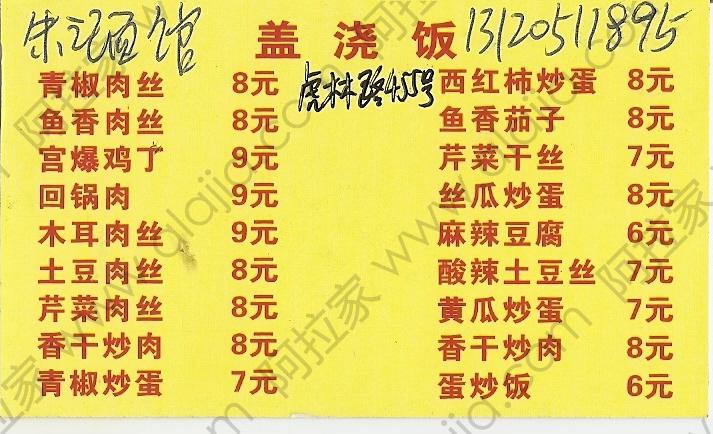 朱记面馆 盖浇饭 13120511895
虎林路455号
青椒肉丝 8元
鱼香肉丝 8元
宫爆鸡丁 9元
回锅肉 9元
木耳肉丝 9元
土豆肉丝 8元
芹菜肉丝 8元
香干炒肉 8元
青椒炒蛋 7元
西红柿炒蛋 8元
鱼香茄子 8元
芹菜干丝 7元
丝瓜炒蛋 8元
麻辣豆腐 6元
酸辣土豆丝 7元
黄瓜炒蛋 7元
香干炒肉 8元
蛋炒饭 6元
阿拉家 www.alajia.com